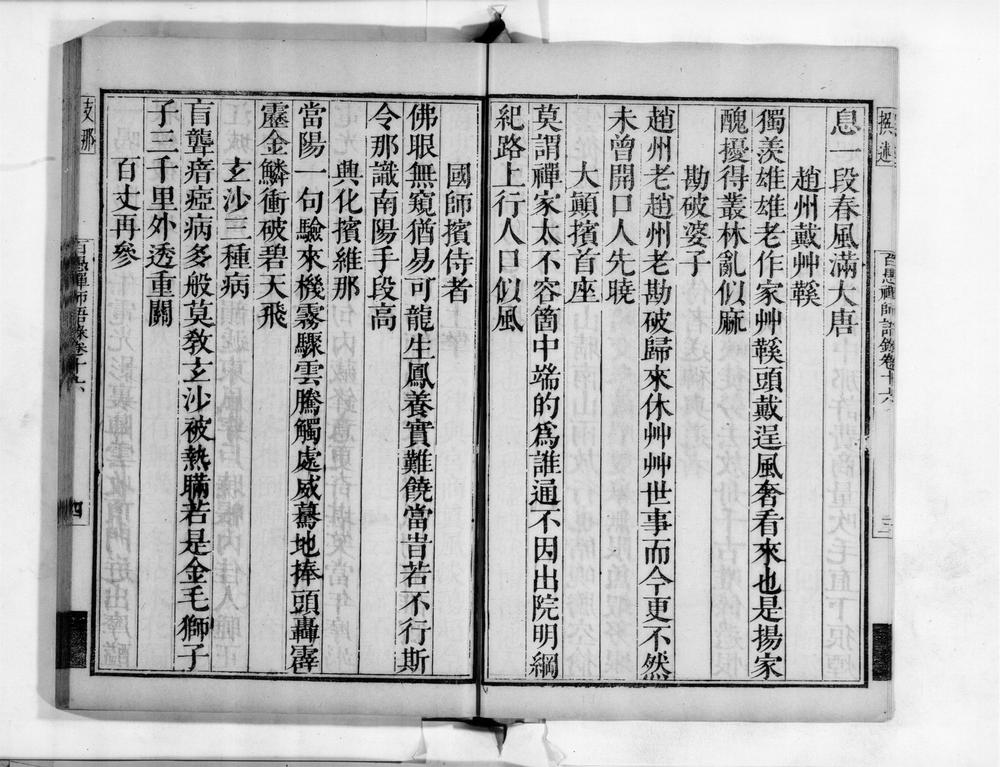 撰述
百愚禪師語錄卷十六
三
息一段春風滿大唐
趙州戴艸鞵
獨羨雄雄老作家艸鞵頭戴逞風奢看來也是揚家
醜擾得叢林亂似麻
勘破婆子
趙州老趙州老勘破歸來休艸艸世事而今更不然
未曾開口人先曉
大顛擯首座
莫謂禪家太不容箇中端的為誰通不因出院明綱
紀路上行人口似風
國師擯侍者
佛眼無窺猶易可龍生鳳養實難饒當昔若不行斯
令那識南陽手段高
興化擯維那
當陽一句驗來機霧驟雲騰觸處威驀地捧頭轟霹
靂金鱗衝破碧天飛
玄沙三種病
盲聾瘖瘂病多般莫教玄沙被熱瞞若是金毛獅子
子三千里外透重關
百丈再參
支那
百愚禪師語錄卷十六
四